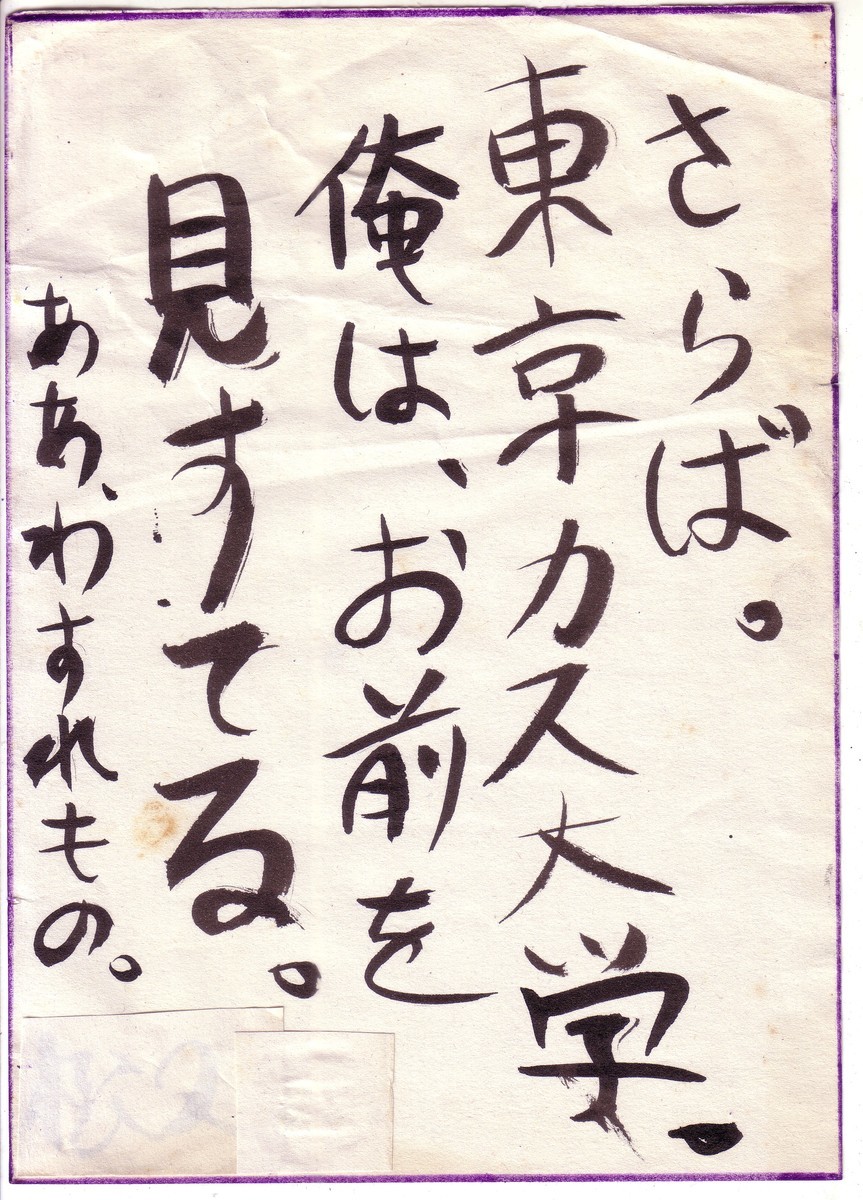 さらば。
東京カス大学。
俺は、お前を
見すてる。
ああ、わすれもの。